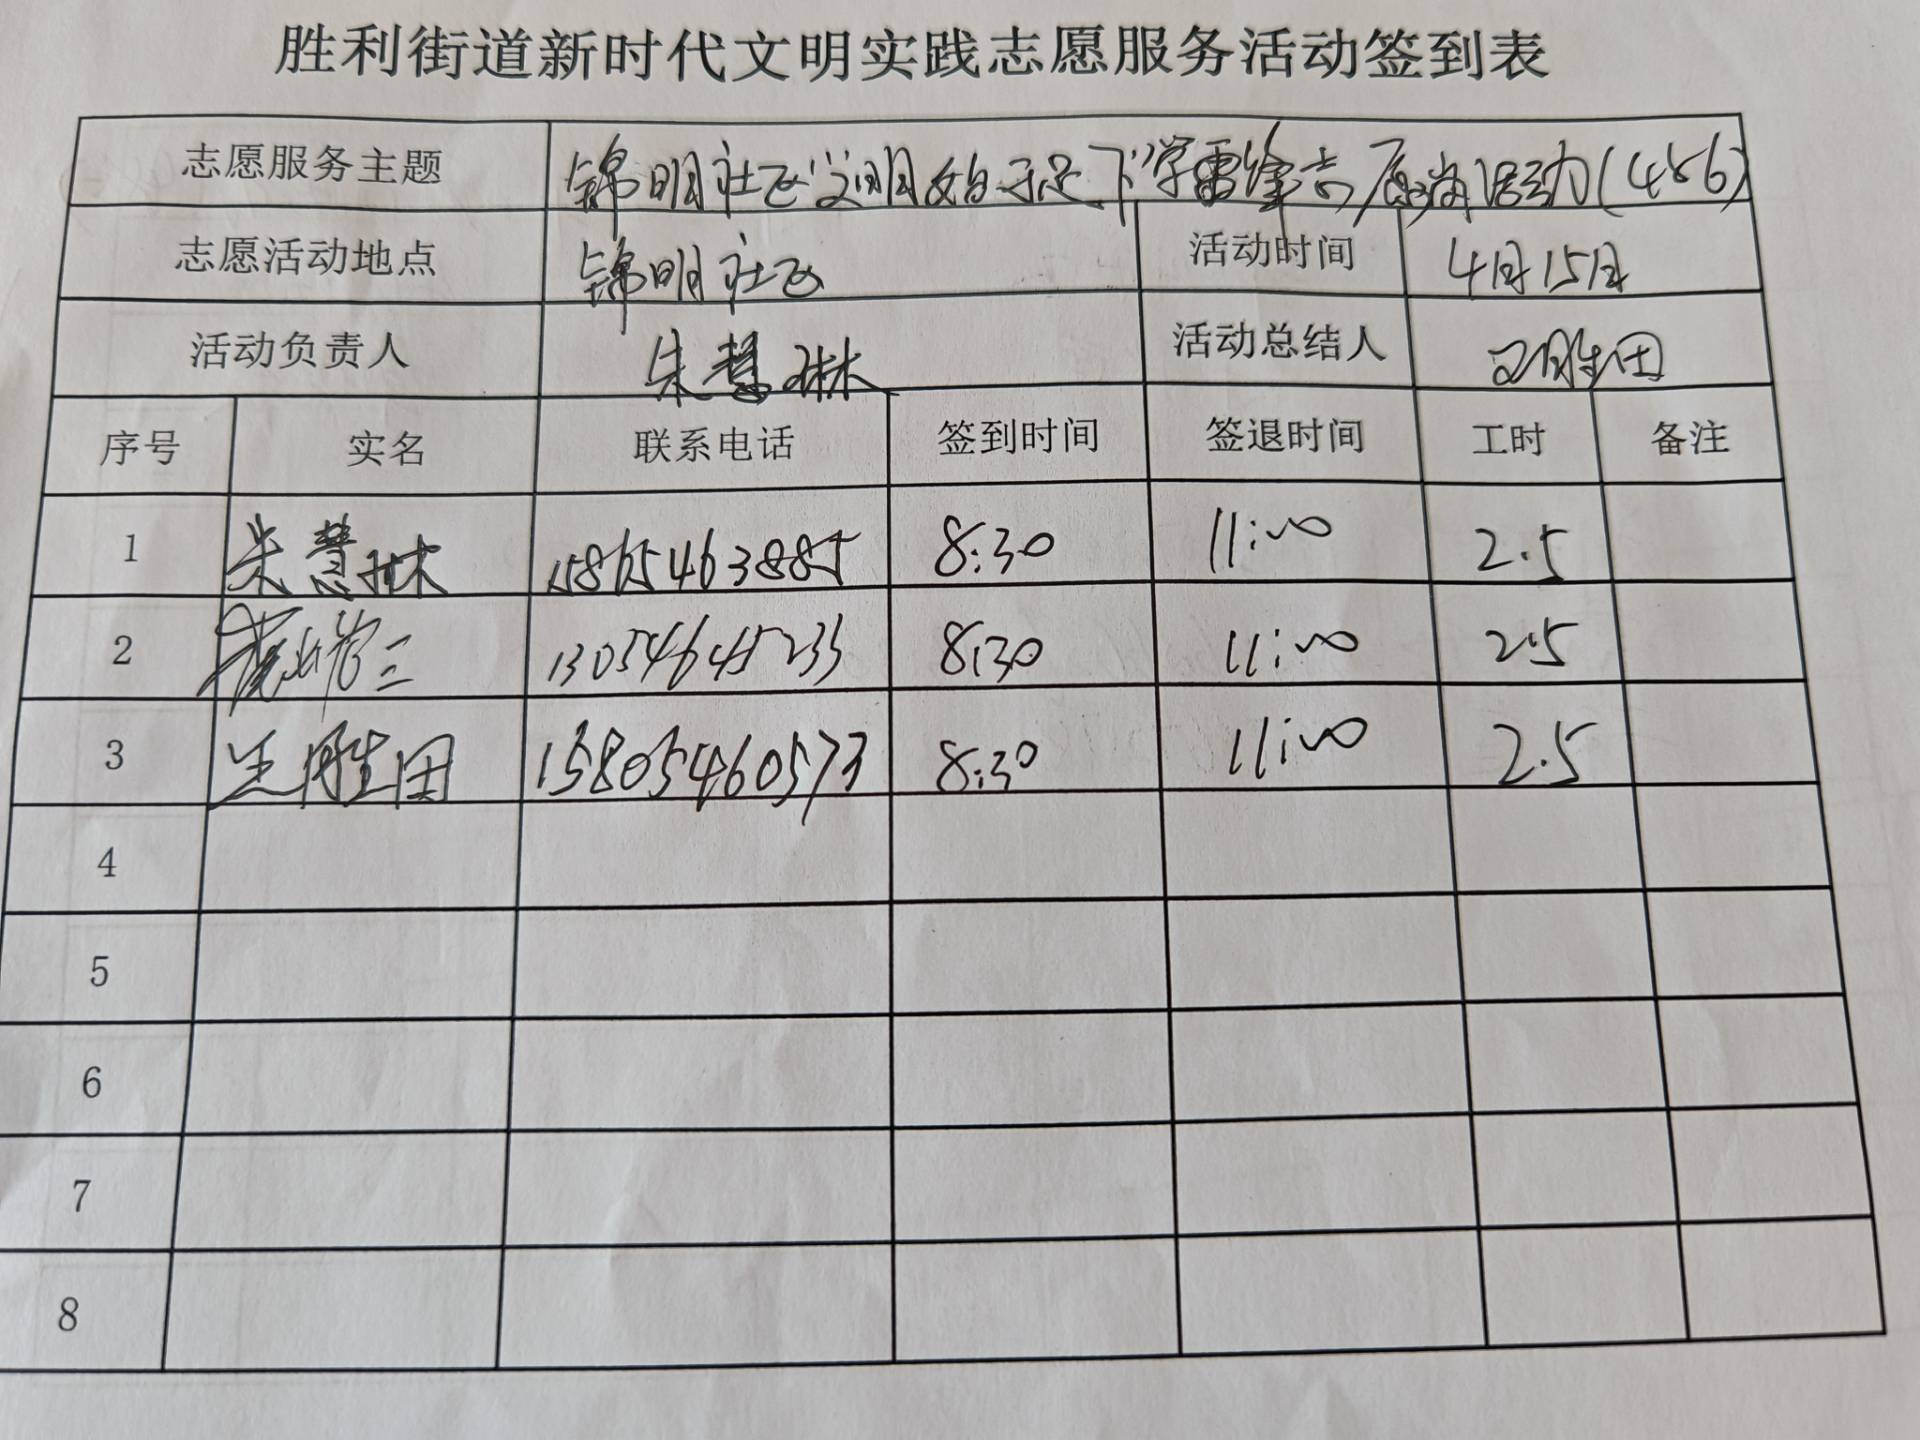 胜利街道新时代文明实践志愿服务活动签到表
志愿服务主题 锦明社区文明始于足下学雷锋志愿者活动(456)
志愿活动地点 锦明社区 活动时间 4月15日
活动负责人 朱慧琳 活动总结人 王胜田
序号 实名 联系电话 签到时间 签退时间 工时 备注
1 朱慧琳 15865463885 8:30 11:00 2.5
2 13054645233 8:30 11:00 2.5
3 王胜田 15805460573 8:30 11:00 2.5
4
5
6
7
8